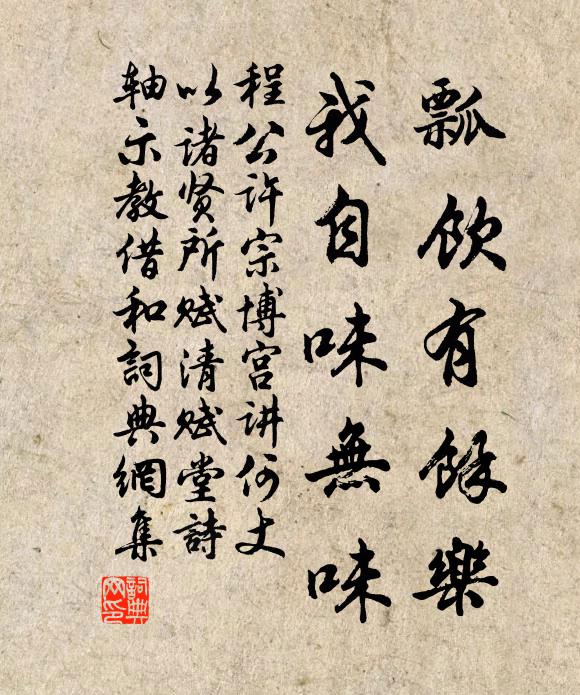 瓢飲有餘樂
我自味無味
程公许宗博宫讲何丈
以诸贤所赋清赋堂詩
轴示教借和詞典網集
詞典网印